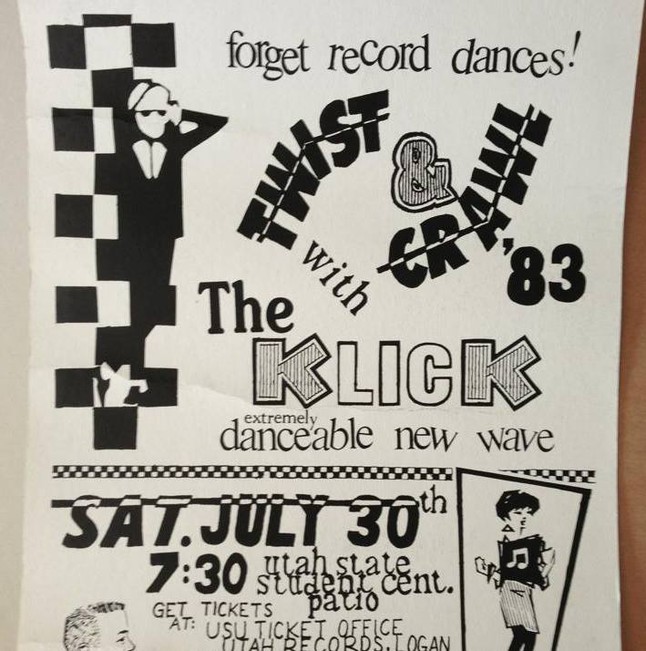 forget record dances!
TWIST & CRAWL '83
with
The
KLICK
extremely
danceable new wave
SAT. JULY 30th
7:30 utah state
student cent.
patio
GET TICKETS
AT: USU TICKET OFFICE
UTAH RECORDS, LOGAN